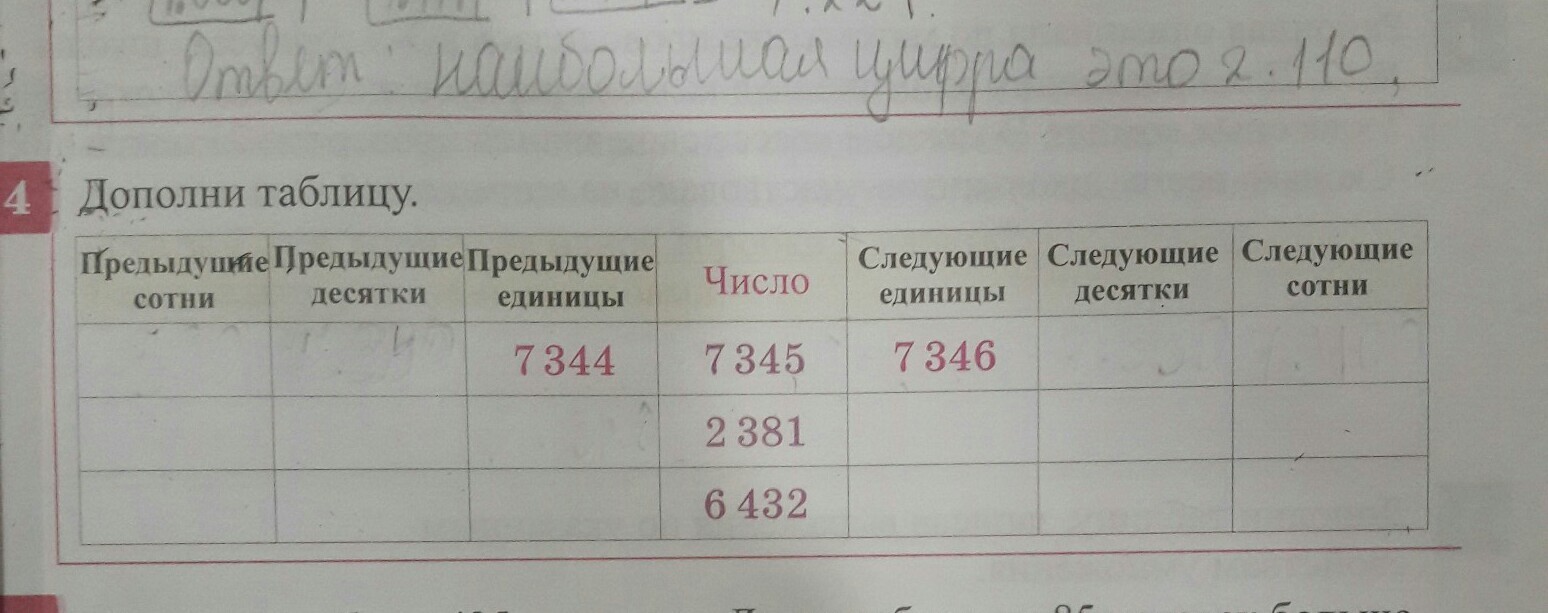 Ответ: наибольшая цифра это 2.110,
4 Дополни таблицу.
Предыдущие сотни Предыдущие десятки Предыдущие единицы Число Следующие единицы Следующие десятки Следующие сотни
7 344 7 345 7 346
2 381
6 432